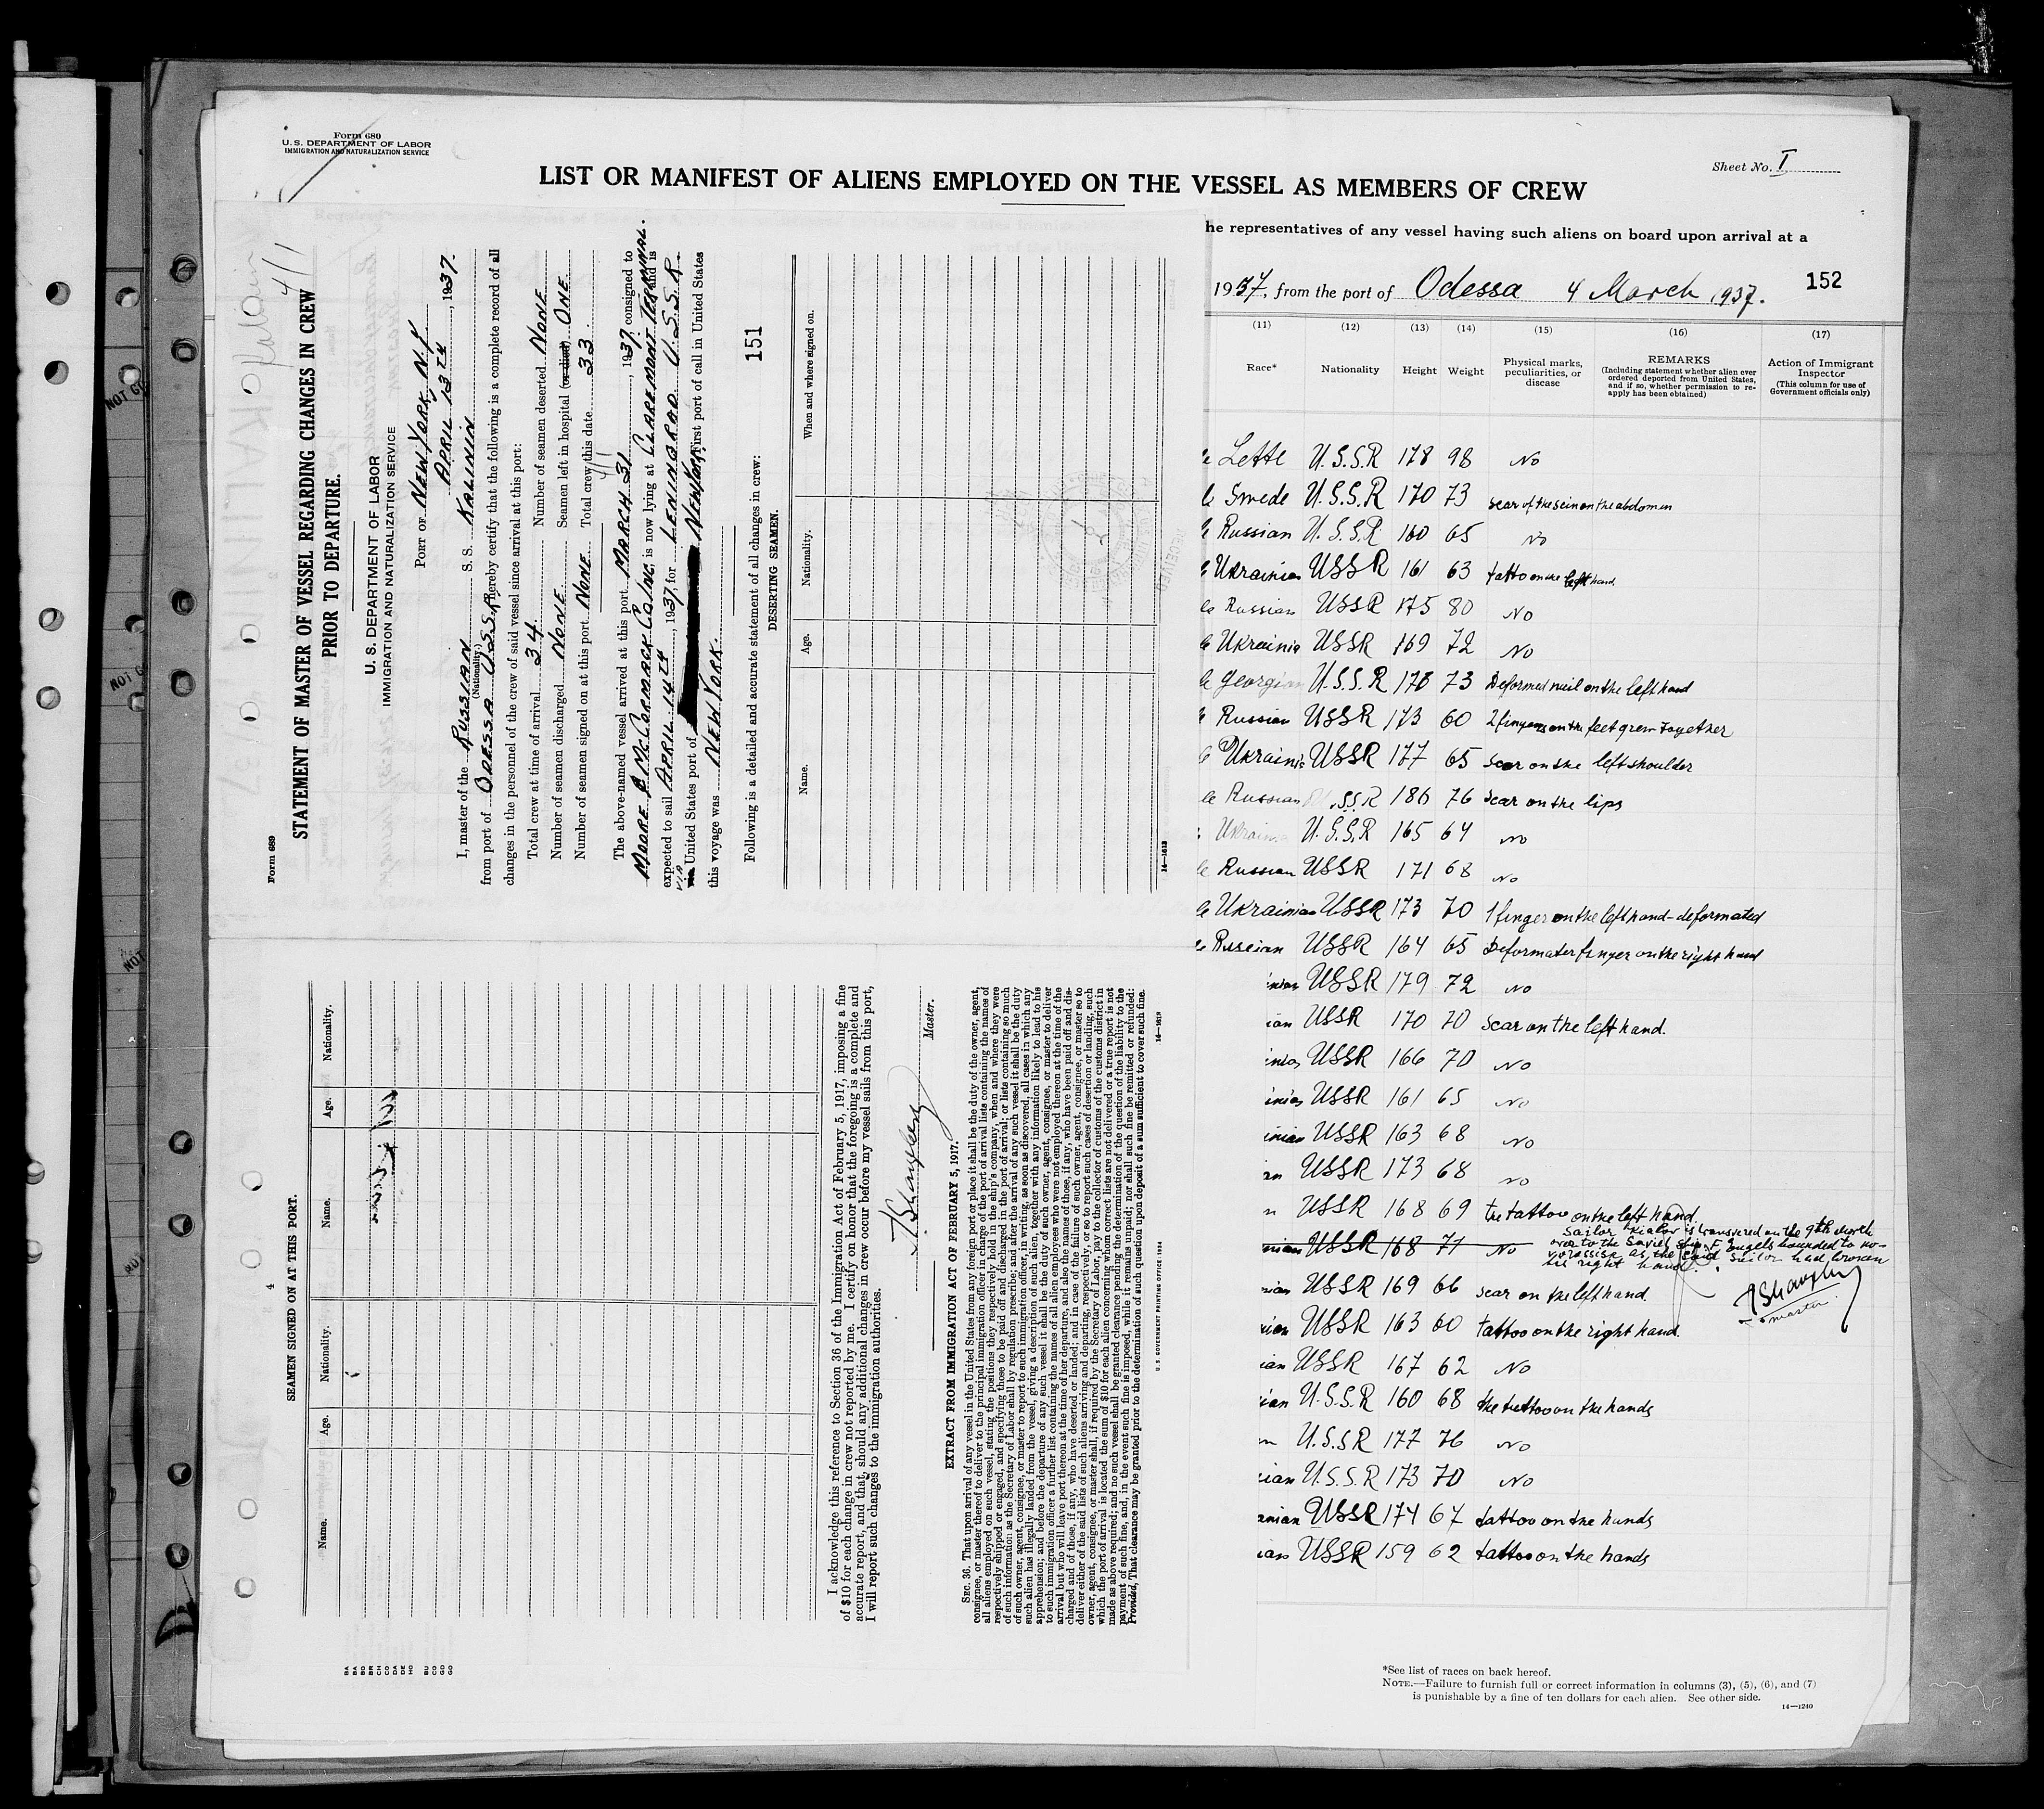 Form 680
U. S. DEPARTMENT OF LABOR
IMMIGRATION AND NATURALIZATION SERVICE
Sheet No. I
LIST OR MANIFEST OF ALIENS EMPLOYED ON THE VESSEL AS MEMBERS OF CREW
he representatives of any vessel having such aliens on board upon arrival at a
1937, from the port of Odessa 4 March 1937.
152
(11) (12) (13) (14) (15) (16) (17)
Race* Nationality Height Weight Physical marks, peculiarities, or disease REMARKS (Including statement whether alien ever ordered deported from United States, and if so, whether permission to reapply has been obtained) Action of Immigrant Inspector (This column for use of Government officials only)
le Lette U.S.S.R 178 98 No
le Swede U.S.S.R 170 73 scar of the on the abdomen
le Russian U.S.S.R 160 65 No
le Ukrainian USSR 161 63 tatto on the left hand
le Russian USSR 175 80 No
le Ukrainia USSR 169 72 No
le Georgian U.S.S.R 178 73 Deformed nail on the left hand
le Russian USSR 173 60 2 fingers on the feet grew together
le Ukrainia USSR 177 65 scar on the left shoulder
le Russian .S.S.R 186 76 scar on the lips
Ukrain U.S.S.R 165 64 No
le Russian USSR 171 68 No
le Ukrainian USSR 173 70 1 finger on the left hand-deformated
le Russian USSR 164 65 Deformater finger on the right hand
inian USSR 179 72 No
ian USSR 170 70 scar on the left hand.
inian USSR 166 70 No
inian USSR 161 65 No
inian USSR 163 68 No
an USSR 173 68 No
n USSR 168 69 the tattoo on the left hand
nian USSR 168 71 No
Sailor is transvered on the 9th march
over to the Soviet ship F. Engels bounded to No-
vorossisk as the said sailor had broken
his right hand.
nian USSR 169 66 scar on the left hand.
master.
nian USSR 163 60 tattoo on the right hand.
ian USSR 167 62 No
ian U.S.S.R 160 68 the tattoo on the hands
n U.S.S.R 177 76 No
nian U.S.S.R 173 70 No
anian USSR 174 67 tattoo on the hands
ian USSR 159 62 tattoo on the hands
*See list of races on back hereof.
NOTE.—Failure to furnish full or correct information in columns (3), (5), (6), and (7)
is punishable by a fine of ten dollars for each alien. See other side.
14—1240
Form 689
4/1
STATEMENT OF MASTER OF VESSEL REGARDING CHANGES IN CREW
PRIOR TO DEPARTURE.
U. S. DEPARTMENT OF LABOR
IMMIGRATION AND NATURALIZATION SERVICE
PORT OF NEW YORK, N.Y
APRIL 13TH, 1937.
I, master of the RUSSIAN S. S. KALININ
(Nationality.)
from port of ODESSA U.S.S.R, hereby certify that the following is a complete record of all
changes in the personnel of the crew of said vessel since arrival at this port:
Total crew at time of arrival 34 Number of seamen deserted NONE
Number of seamen discharged NONE Seamen left in hospital (or died) ONE
Number of seamen signed on at this port NONE Total crew this date 33.
The above-named vessel arrived at this port MARCH 31, 1937, consigned to
MOORE & McCORMACK CO, INC, is now lying at CLAREMONT TERMINAL. and is
expected to sail APRIL 14TH, 1937, for LENINGRAD U.S.S.R.
via United States port of NEW YORK First port of call in United States
this voyage was NEW YORK.
151
Following is a detailed and accurate statement of all changes in crew:
DESERTING SEAMEN.
Name. Age. Nationality. When and where signed on.
4
SEAMEN SIGNED ON AT THIS PORT.
Name. Age. Nationality. Name. Age. Nationality.
I acknowledge this reference to Section 36 of the Immigration Act of February 5, 1917, imposing a fine
of $10 for each change in crew not reported by me. I certify on honor that the foregoing is a complete and
accurate report, and that, should any additional changes in crew occur before my vessel sails from this port,
I will report such changes to the immigration authorities.
Master.
EXTRACT FROM IMMIGRATION ACT OF FEBRUARY 5, 1917.
SEC. 36. That upon arrival of any vessel in the United States from any foreign port or place it shall be the duty of the owner, agent,
consignee, or master thereof to deliver to the principal immigration officer in charge of the port of arrival lists containing the names of
all aliens employed on such vessel, stating the positions they respectively hold in the ship's company, when and where they were
respectively shipped or engaged, and specifying those to be paid off and discharged in the port of arrival; or lists containing so much
of such information as the Secretary of Labor shall by regulation prescribe; and after the arrival of any such vessel it shall be the duty
of such owner, agent, consignee, or master to report to such immigration officer, in writing, as soon as discovered, all cases in which any
such alien has illegally landed from the vessel, giving a description of such alien, together with any information likely to lead to his
apprehension; and before the departure of any such vessel it shall be the duty of such owner, agent, consignee, or master to deliver
to such immigration officer a further list containing the names of all alien employees who were not employed thereon at the time of the
arrival but who will leave port thereon at the time of her departure, and also the names of those, if any, who have been paid off and dis-
charged and of those, if any, who have deserted or landed; and in case of the failure of such owner, agent, consignee, or master so to
deliver either of the said lists of such aliens arriving and departing, respectively, or so to report such cases of desertion or landing, such
owner, agent, consignee, or master shall, if required by the Secretary of Labor, pay to the collector of customs of the customs district in
which the port of arrival is located the sum of $10 for each alien concerning whom correct lists are not delivered or a true report is not
made as above required; and no such vessel shall be granted clearance pending the determination of the question of the liability to the
payment of such fine, and, in the event such fine is imposed, while it remains unpaid; nor shall such fine be remitted or refunded:
Provided, That clearance may be granted prior to the determination of such question upon deposit of a sum sufficient to cover such fine.
U. S. GOVERNMENT PRINTING OFFICE